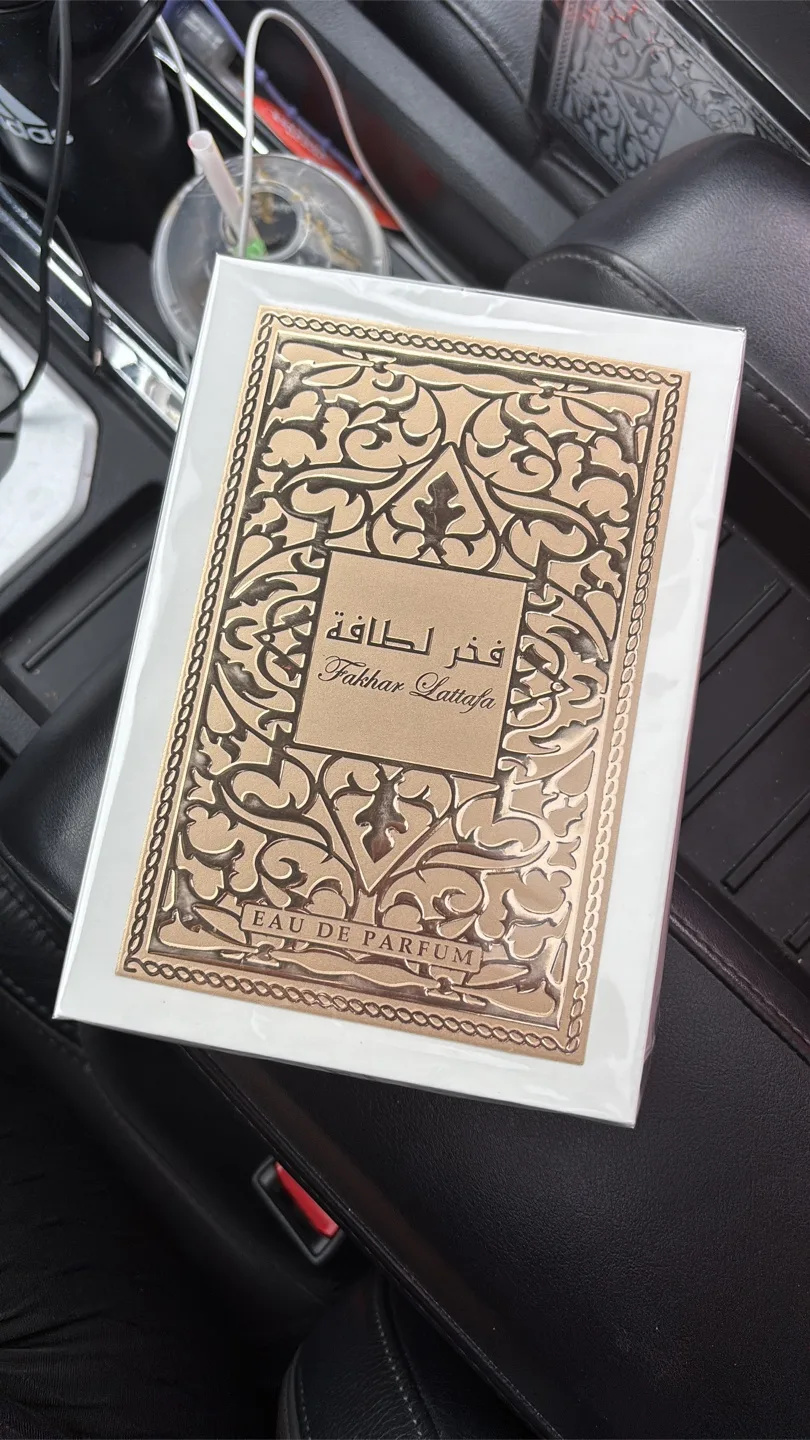 adidas
فخر لطافة
Fakhar Lattafa
EAU DE PARFUM